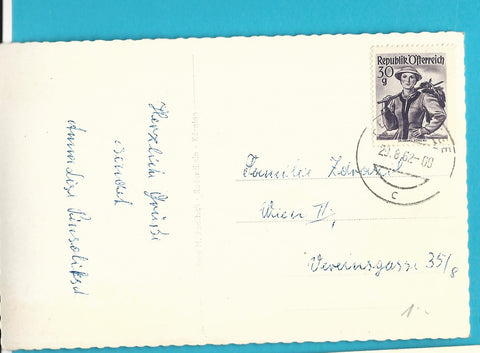 Herzliche Grüße
sendet
Anna Lise
Republik Österreich
30
g
23.8.62-00
c
Familie
Wien II;
Vereinsgasse 35/8
1.-